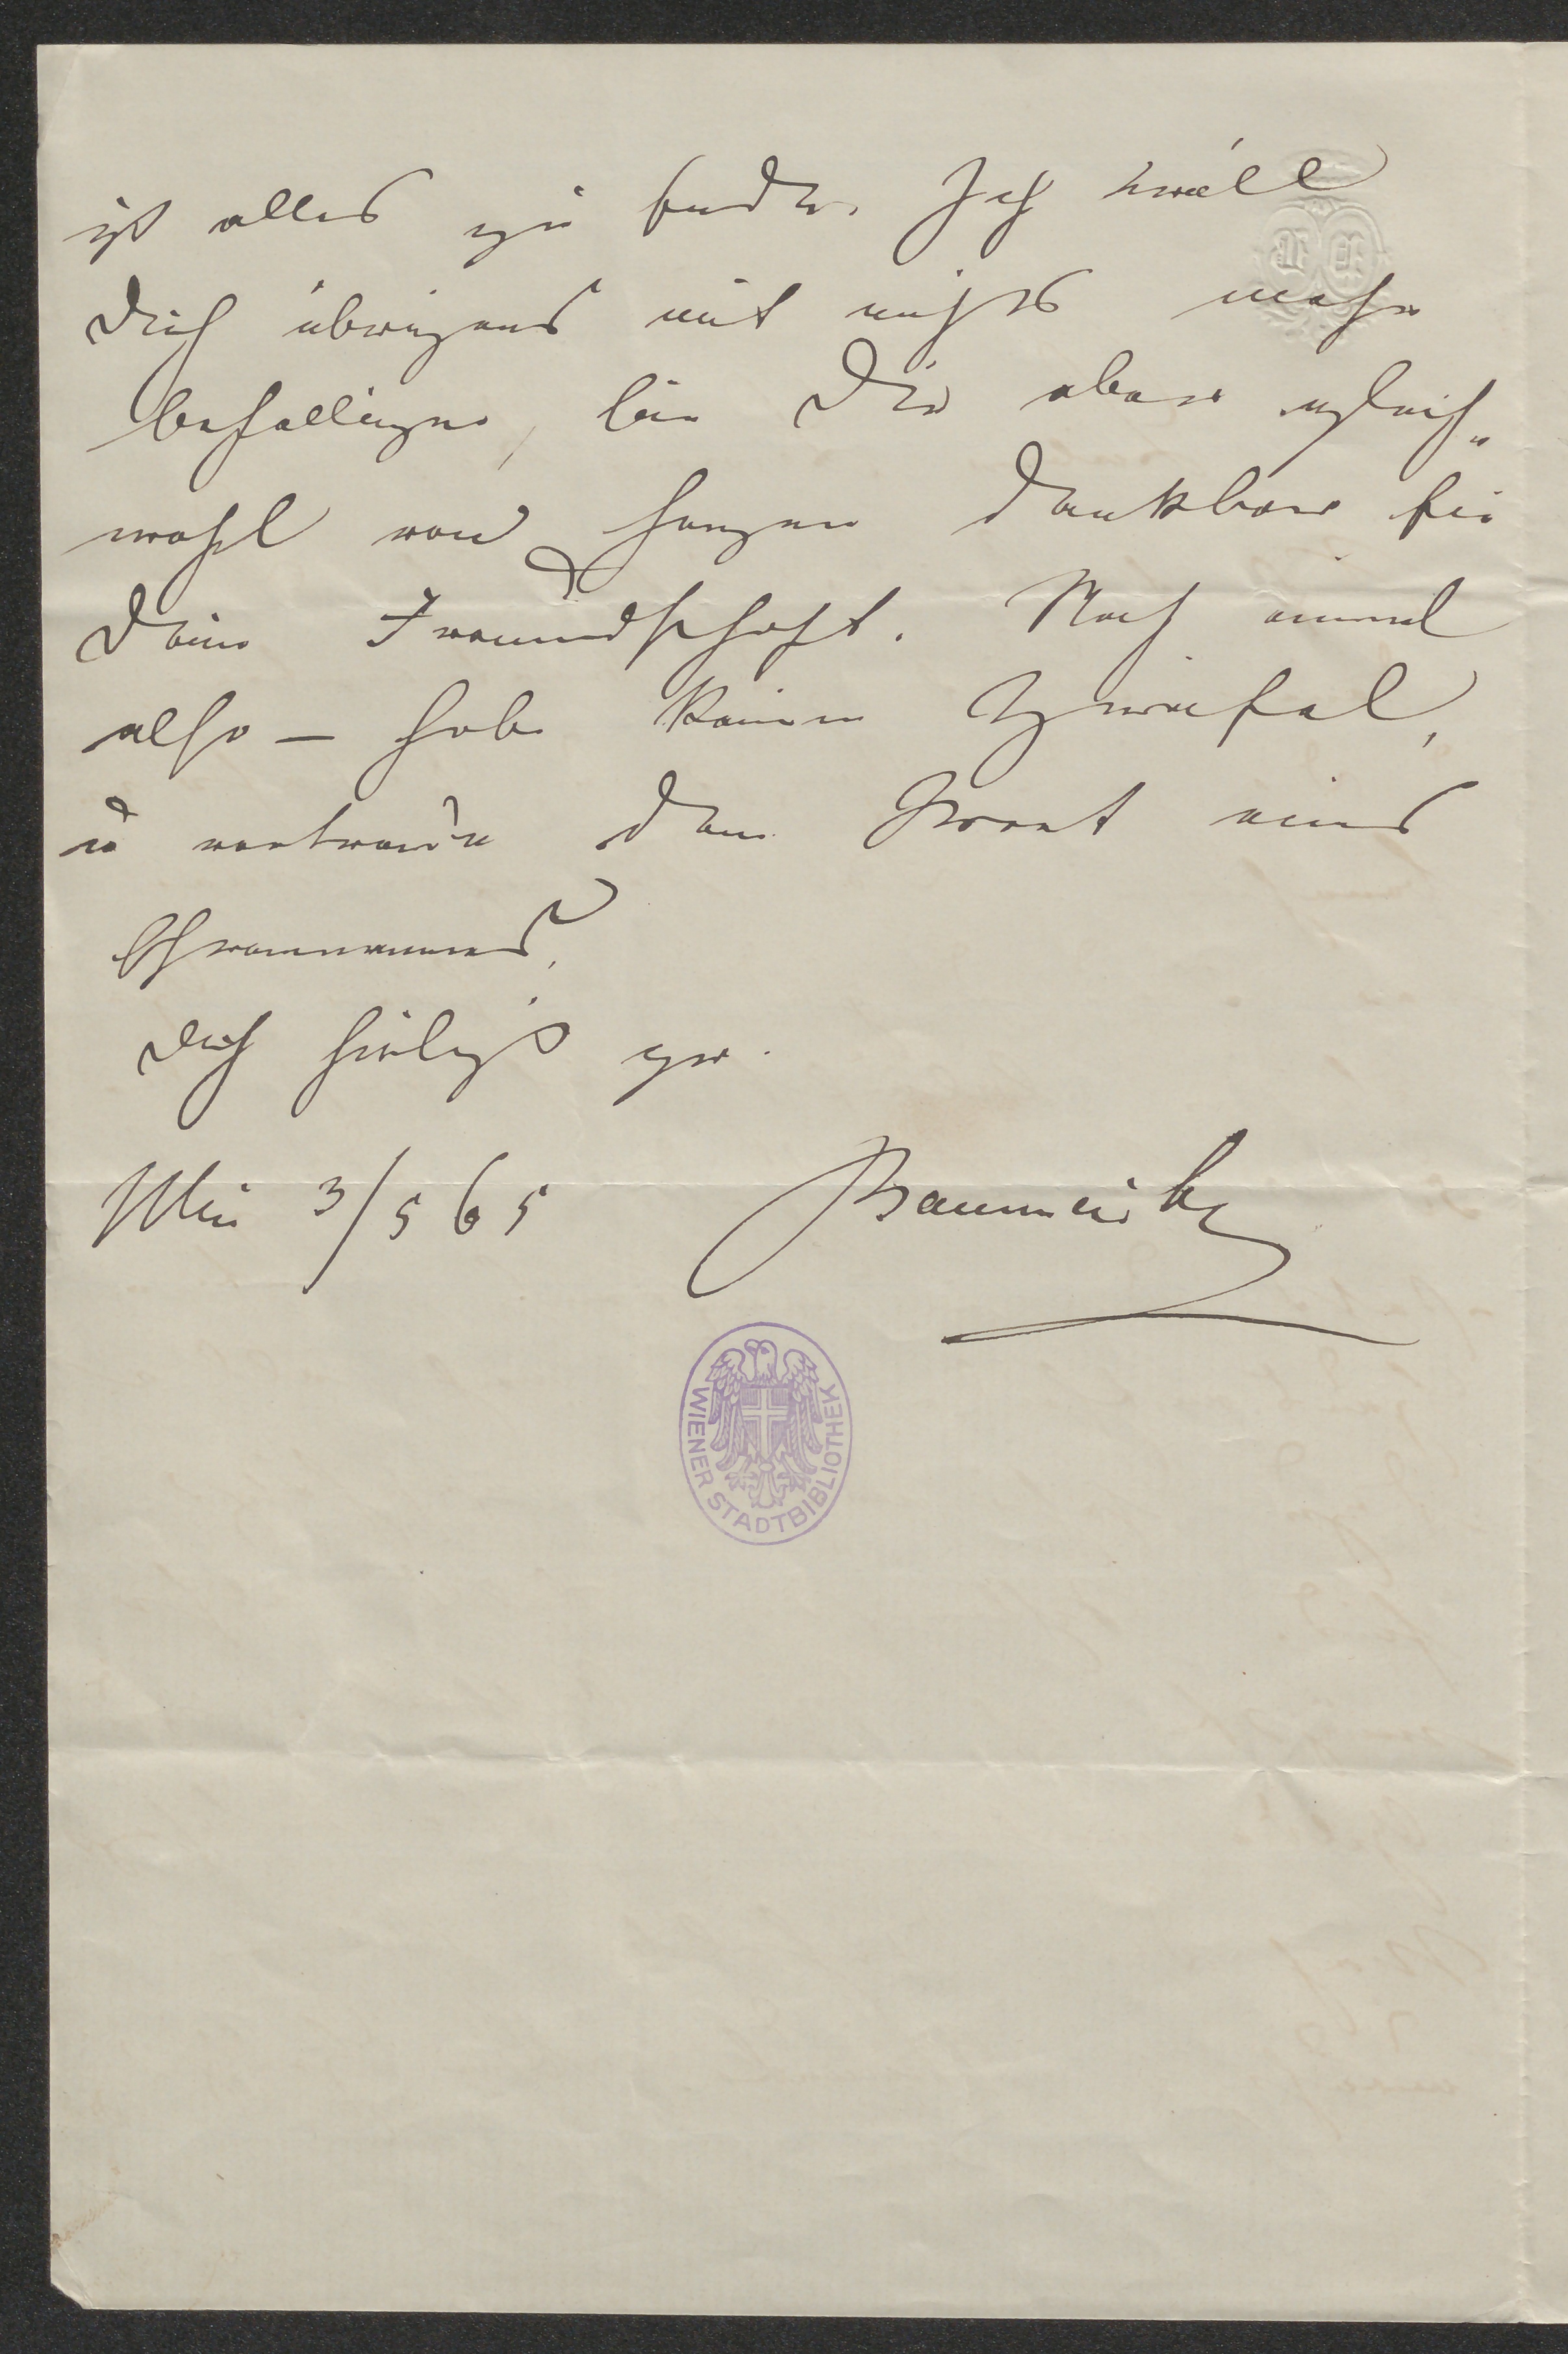 ist alles zu finden. Ich will
Dich übrigens mit nichts mehr
behelligen, bin Dir aber gleich„
wohl von Herzen dankbar für
Deine Freundschaft. Noch einmal
also – habe keinen Zweifel,
u vertraue dem Wort eines
Ehrenmannes.
Dich herzlichst gr.
Wien 3/5 65 Baumeister
WIENER STADTBIBLIOTHEK